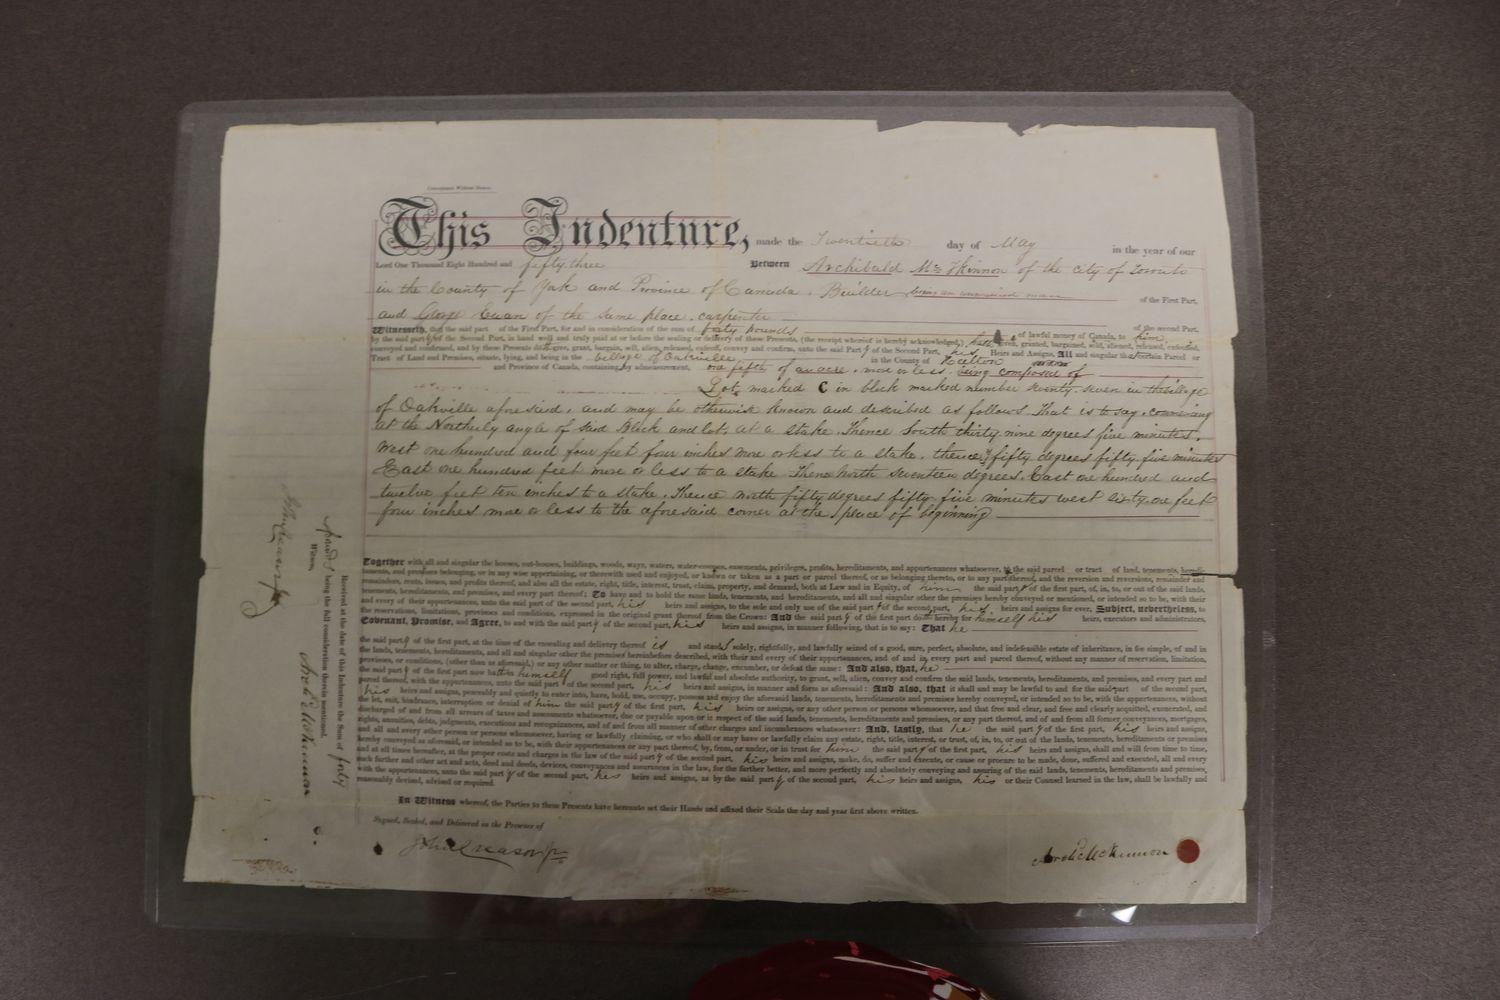 Conveyance Without Dower.
This Indenture, made the Twentieth day of May in the year of our
Lord One Thousand Eight Hundred and fifty three Between Archibald McKinnon of the city of Toronto
in the County of York and Province of Canada. Builder being an unmarried man of the First Part,
and George Ewan of the same place. carpenter of the second Part,
Witnesseth, that the said part of the First Part, for and in consideration of the sum of forty pounds of lawful money of Canada, to him
by the said party of the Second Part, in hand well and truly paid at or before the sealing or delivery of these Presents, (the receipt whereof is hereby acknowledged,) hath given, granted, bargained, sold, aliened, released, enfeoffed,
conveyed and confirmed, and by these Presents doth give, grant, bargain, sell, alien, released, enfeoff, convey and confirm, unto the said Party of the Second Part, his Heirs and Assigns, All and singular that certain Parcel or
Tract of Land and Premises, situate, lying, and being in the village of Oakville in the County of Halton
and Province of Canada, containing by admeasurement, one fifth of an acre, more or less being composed of
Lot marked C in block marked number seventy-seven in the village
of Oakville aforesaid, and may be otherwise known and described as follows. That is to say. commencing
at the Northerly angle of said Block and lot, at a stake. Thence South thirty nine degrees five minutes.
West one hundred and four feet four inches more or less to a stake. thence S fifty degrees fifty five minutes
East one hundred feet more or less to a stake Thence North seventeen degrees. East one hundred and
twelve feet ten inches to a stake. Thence north fifty degrees fifty five minutes west sixty one feet
four inches more or less to the aforesaid corner at the place of beginning
Together with all and singular the houses, out-houses, buildings, woods, ways, waters, water-courses, easements, privileges, profits, hereditaments, and appurtenances whatsoever, to the said parcel or tract of land, tenements, heredi-
taments, and premises belonging, or in any wise appertaining, or therewith used and enjoyed, or known or taken as a part or parcel thereof, or as belonging thereto, or to any part thereof, and the reversion and reversions, remainder and
remainders, rents, issues, and profits thereof, and also all the estate, right, title, interest, trust, claim, property, and demand, both at Law and in Equity, of him the said party of the first part, of, in, to, or out of the said lands,
tenements, hereditaments, and premises, and every part thereof; To have and to hold the same lands, tenements, and hereditaments, and all and singular other the premises hereby conveyed or mentioned, or intended so to be, with their
and every of their appurtenances, unto the said party of the second part, his heirs and assigns, to the sole and only use of the said party of the second part, his heirs and assigns for ever. Subject, nevertheless, to
the reservations, limitations, provisoes and conditions, expressed in the original grant thereof from the Crown: And the said party of the first part doth hereby for himself his heirs, executors and administrators,
Covenant, Promise, and Agree, to and with the said party of the second part, his heirs and assigns, in manner following, that is to say: That he
the said party of the first part, at the time of the ensealing and delivery thereof is and stands solely, rightfully, and lawfully seized of a good, sure, perfect, absolute, and indefeasible estate of inheritance, in fee simple, of and in
the lands, tenements, hereditaments, and all and singular other the premises hereinbefore described, with their and every of their appurtenances, and of and in every part and parcel thereof, without any manner of reservation, limitation,
provisoes, or conditions, (other than as aforesaid,) or any other matter or thing, to alter, charge, change, encumber, or defeat the same: And also, that, he
the said party of the first part now hath in himself good right, full power, and lawful and absolute authority, to grant, sell, alien, convey and confirm the said lands, tenements, hereditaments, and premises, and every part and
parcel thereof, with the appurtenances, unto the said party of the second part, his heirs and assigns, in manner and form as aforesaid: And also, that it shall and may be lawful to and for the said part of the second part,
his heirs and assigns, peaceably and quietly to enter into, have, hold, use, occupy, possess and enjoy the aforesaid lands, tenements, hereditaments and premises hereby conveyed, or intended so to be, with the appurtenances, without
the let, suit, hindrance, interruption or denial of him the said party of the first part, his heirs or assigns, or any other person or persons whomsoever, and that free and clear, and free and clearly acquitted, exonerated, and
discharged of and from all arrears of taxes and assessments whatsoever, due or payable upon or in respect of the said lands, tenements, hereditaments and premises, or any part thereof, and of and from all former conveyances, mortgages,
rights, annuities, debts, judgments, executions and recognizances, and of and from all manner of other charges and incumbrances whatsoever: And, lastly, that he the said party of the first part, his heirs and assigns,
and all and every other person or persons whomsoever, having or lawfully claiming, or who shall or may have or lawfully claim any estate, right, title, interest, or trust, of, in, to, or out of the lands, tenements, hereditaments or premises
hereby conveyed as aforesaid, or intended so to be, with their appurtenances or any part thereof, by, from, or under, or in trust for him the said party of the first part, his heirs and assigns, shall and will from time to time,
and at all times hereafter, at the proper costs and charges in the law of the said party of the second part, his heirs and assigns, make, do, suffer and execute, or cause or procure to be made, done, suffered and executed, all and every
such further and other act and acts, deed and deeds, devices, conveyances and assurances in the law, for the further, better, and more perfectly and absolutely conveying and assuring of the said lands, tenements, hereditaments and premises,
with the appurtenances, unto the said party of the second part, his heirs and assigns, as by the said party of the second part, his heirs and assigns, his or their Counsel learned in the law, shall be lawfully and
reasonably devised, advised or required.
In Witness whereof, the Parties to these Presents have hereunto set their Hands and affixed their Seals the day and year first above written.
Signed, Sealed, and Delivered in the Presence of
Archd McKinnon
Received at the date of this Indenture the Sum of forty
pounds being the full consideration therein mentioned.
Witness,
Archd McKinnon